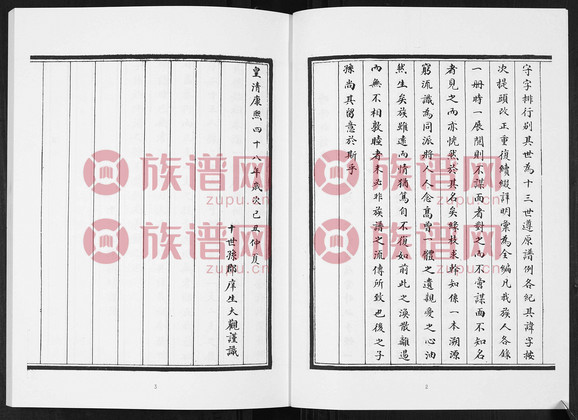 守字排行列其世為十三世遵原譜例各紀其諱字按
次提頭改正重復續綴詳明彙為全編凡我族人各錄
一冊時一展閱則不謀面者對之而不啻謀面不知名
者見之而亦恍然於其名矣緣枝求幹知係一本溯源
窮流識為同派將人人念高曾一體之遺親愛之心油
然生矣族雖遠而情猶篤自不復如前此之漠散離遇
而無不相敦睦者未必非族譜之流傳所致也後之子
孫尚其留意於斯乎
皇清康熙四十八年歲次己丑仲夏
十世孫郡庠生大觀謹識
5
5
族谱网
zupu.cn
族谱网
zupu.cn
族谱网
zupu.cn
族谱网
zupu.cn